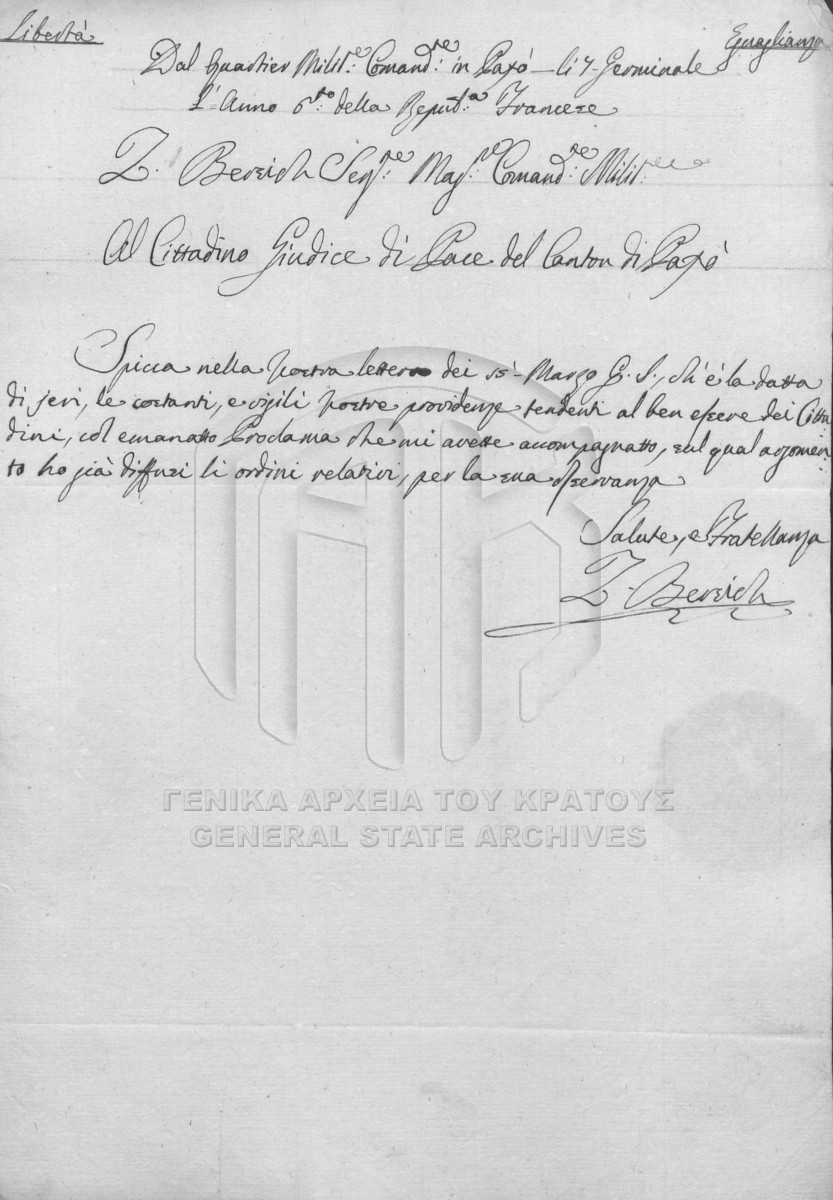 Libertà Eguaglianza
Dal Quartier Milit:re Comand:te in Paxò — li 7 Germinale
L'Anno 6:to della Repub:ca Francese
Z. Bersich Serg:te Mag:re Comand:te Milit:re
Al Cittadino Giudice di Pace del Canton di Paxò
Spicca nella vostra lettera dei 15 Marzo S., ch'è la datta
di jeri, le costanti, e vigili vostre providenze tendenti al ben essere dei Citta
dini, col emanatto Proclama che mi avette accompagnatto, sul qual argomen
to ho già diffusi li ordini relativi, per la sua osservanza
Salute, e Fratellanza
Z. Bersich
ΓΕΝΙΚΑ ΑΡΧΕΙΑ ΤΟΥ ΚΡΑΤΟΥΣ
GENERAL STATE ARCHIVES